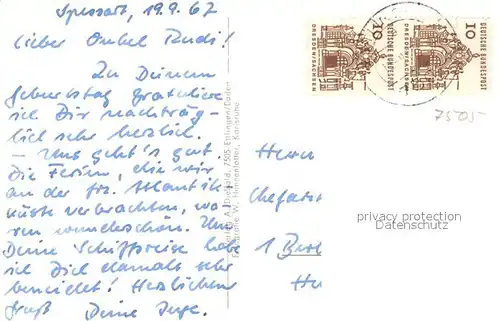 Spessart, 19.9.67
Lieber Onkel Rudi!
Zu Deinem
Geburtstag gratuliere
ich Dir nachträg-
lich sehr herzlich.
– Uns geht's gut.
Die Ferien, die wir
an der frz. Atlantik-
küste verbrachten, wa-
ren wunderschön. Um
Deine Schiffsreise habe
ich Dich damals sehr
beneidet! Herzlichen
Gruß Deine Inge.
7505 Ettlingen/Baden
Karlsruhe
10
DEUTSCHE BUNDESPOST
DRESDEN/SACHSEN
10
DEUTSCHE BUNDESPOST
DRESDEN/SACHSEN
7505
Herrn
Chefarzt
privacy protection
Datenschutz
1 Berl